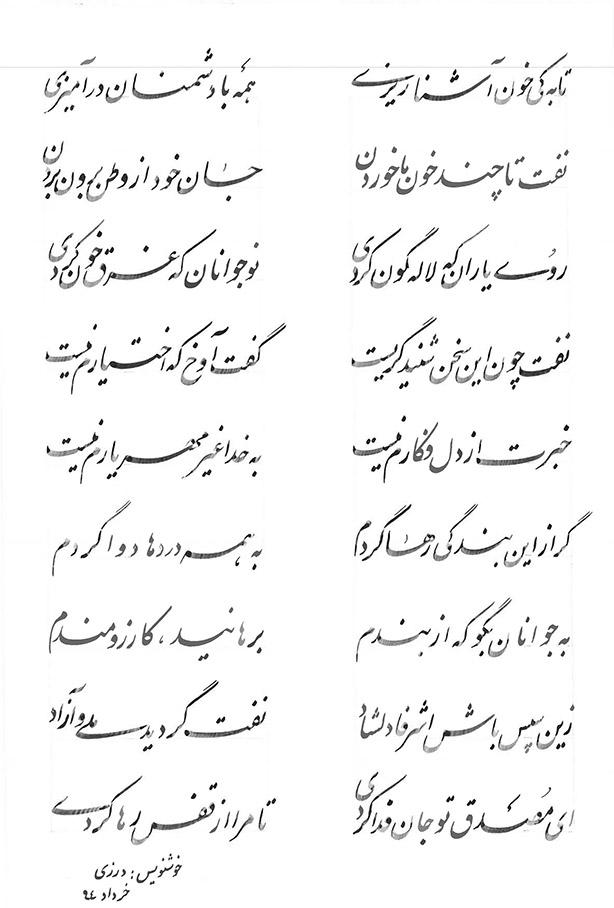 تا به کی خون آشنا ریزی همه با دشمنان درآمیزی
نفت تا چند خون ما خوردن جان خود از وطن برون بردن
روی یاران که لاله گون کردی نوجوانان که غرق خون کردی
نفت چون این سخن شنید گریست گفت آوخ که اختیارم نیست
خبرت از دل فکارم نیست به خدا غیر مهر یارم نیست
گر از این بندگی رها گردم به همه دردها دوا گردم
به جوانان بگو که از بندم برهانید، کارزومندم
زین سپس باش اشرفا دلشاد نفت گردید ملی و آزاد
ای مُصَدق تو جان فدا کردی تا مرا از قفس رها کردی
خوشنویس: درزی
خرداد ۹٤